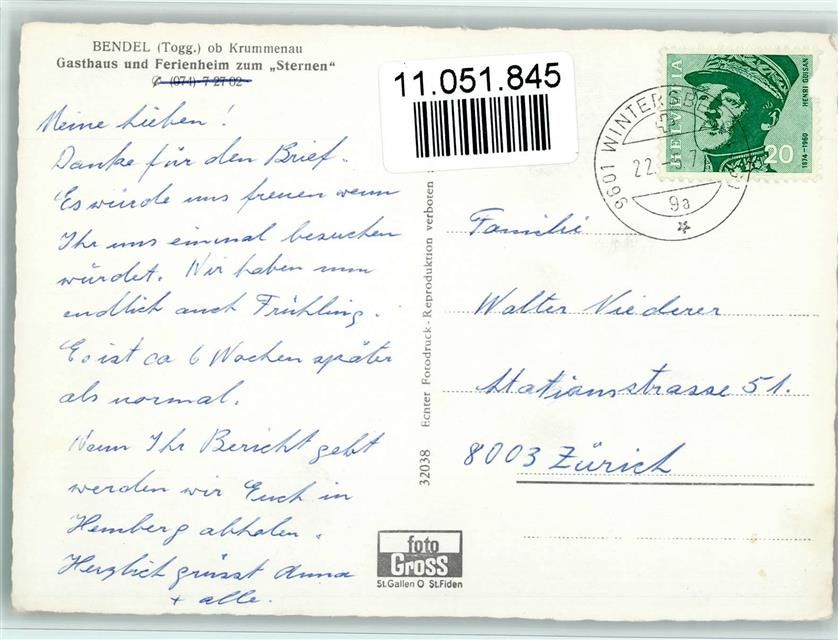 BENDEL (Togg.) ob Krummenau
Gasthaus und Ferienheim zum „Sternen“
(074) 7 27 02
Meine Lieben!
Danke für den Brief.
Es würde uns freuen wenn
Ihr uns einmal besuchen
würdet. Wir haben nun
endlich auch Frühling.
Es ist ca 6 Wochen später
als normal.
Wenn Ihr Bericht gebt
werden wir Euch in
Hemberg abholen.
Herzlich grüsst Anna
+ alle.
11.051.845
HELVETIA
HENRI GUISAN
1874–1960
20
9601 WINTERSB
22.
9a
Familie
Walter Niederer
Stationsstrasse 51.
8003 Zürich
32038 Echter Fotodruck - Reproduktion verboten
foto
Gross
St.Gallen O St.Fiden